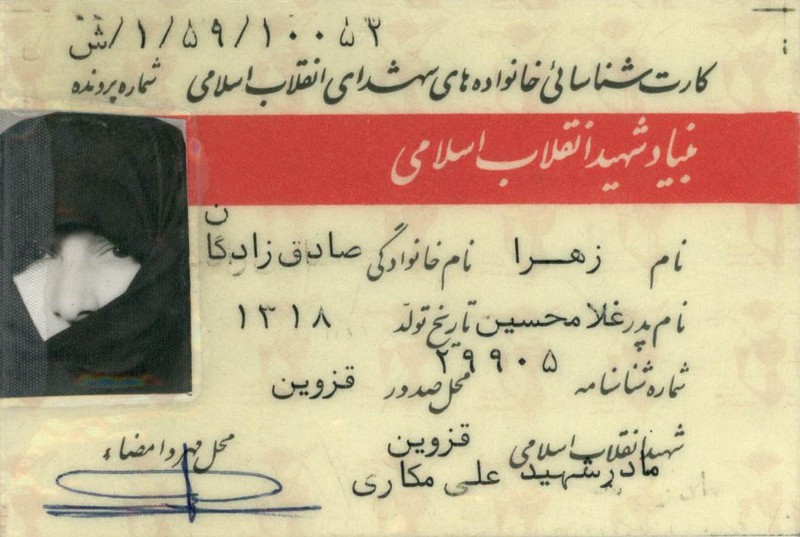 ش/۱/۵۹/۱۰۰۵۳
کارت شناسائی خانواده های شهدای انقلاب اسلامی شماره پرونده
بنیاد شهید انقلاب اسلامی
نام زهرا نام خانوادگی صادق زادگان
نام پدر غلامحسین تاریخ تولّد ۱۳۱۸
شماره شناسنامه ۲۹۹۰۵ محل صدور قزوین
شهید انقلاب اسلامی قزوین
مادر شهید علی مکاری
محل مهر و امضاء